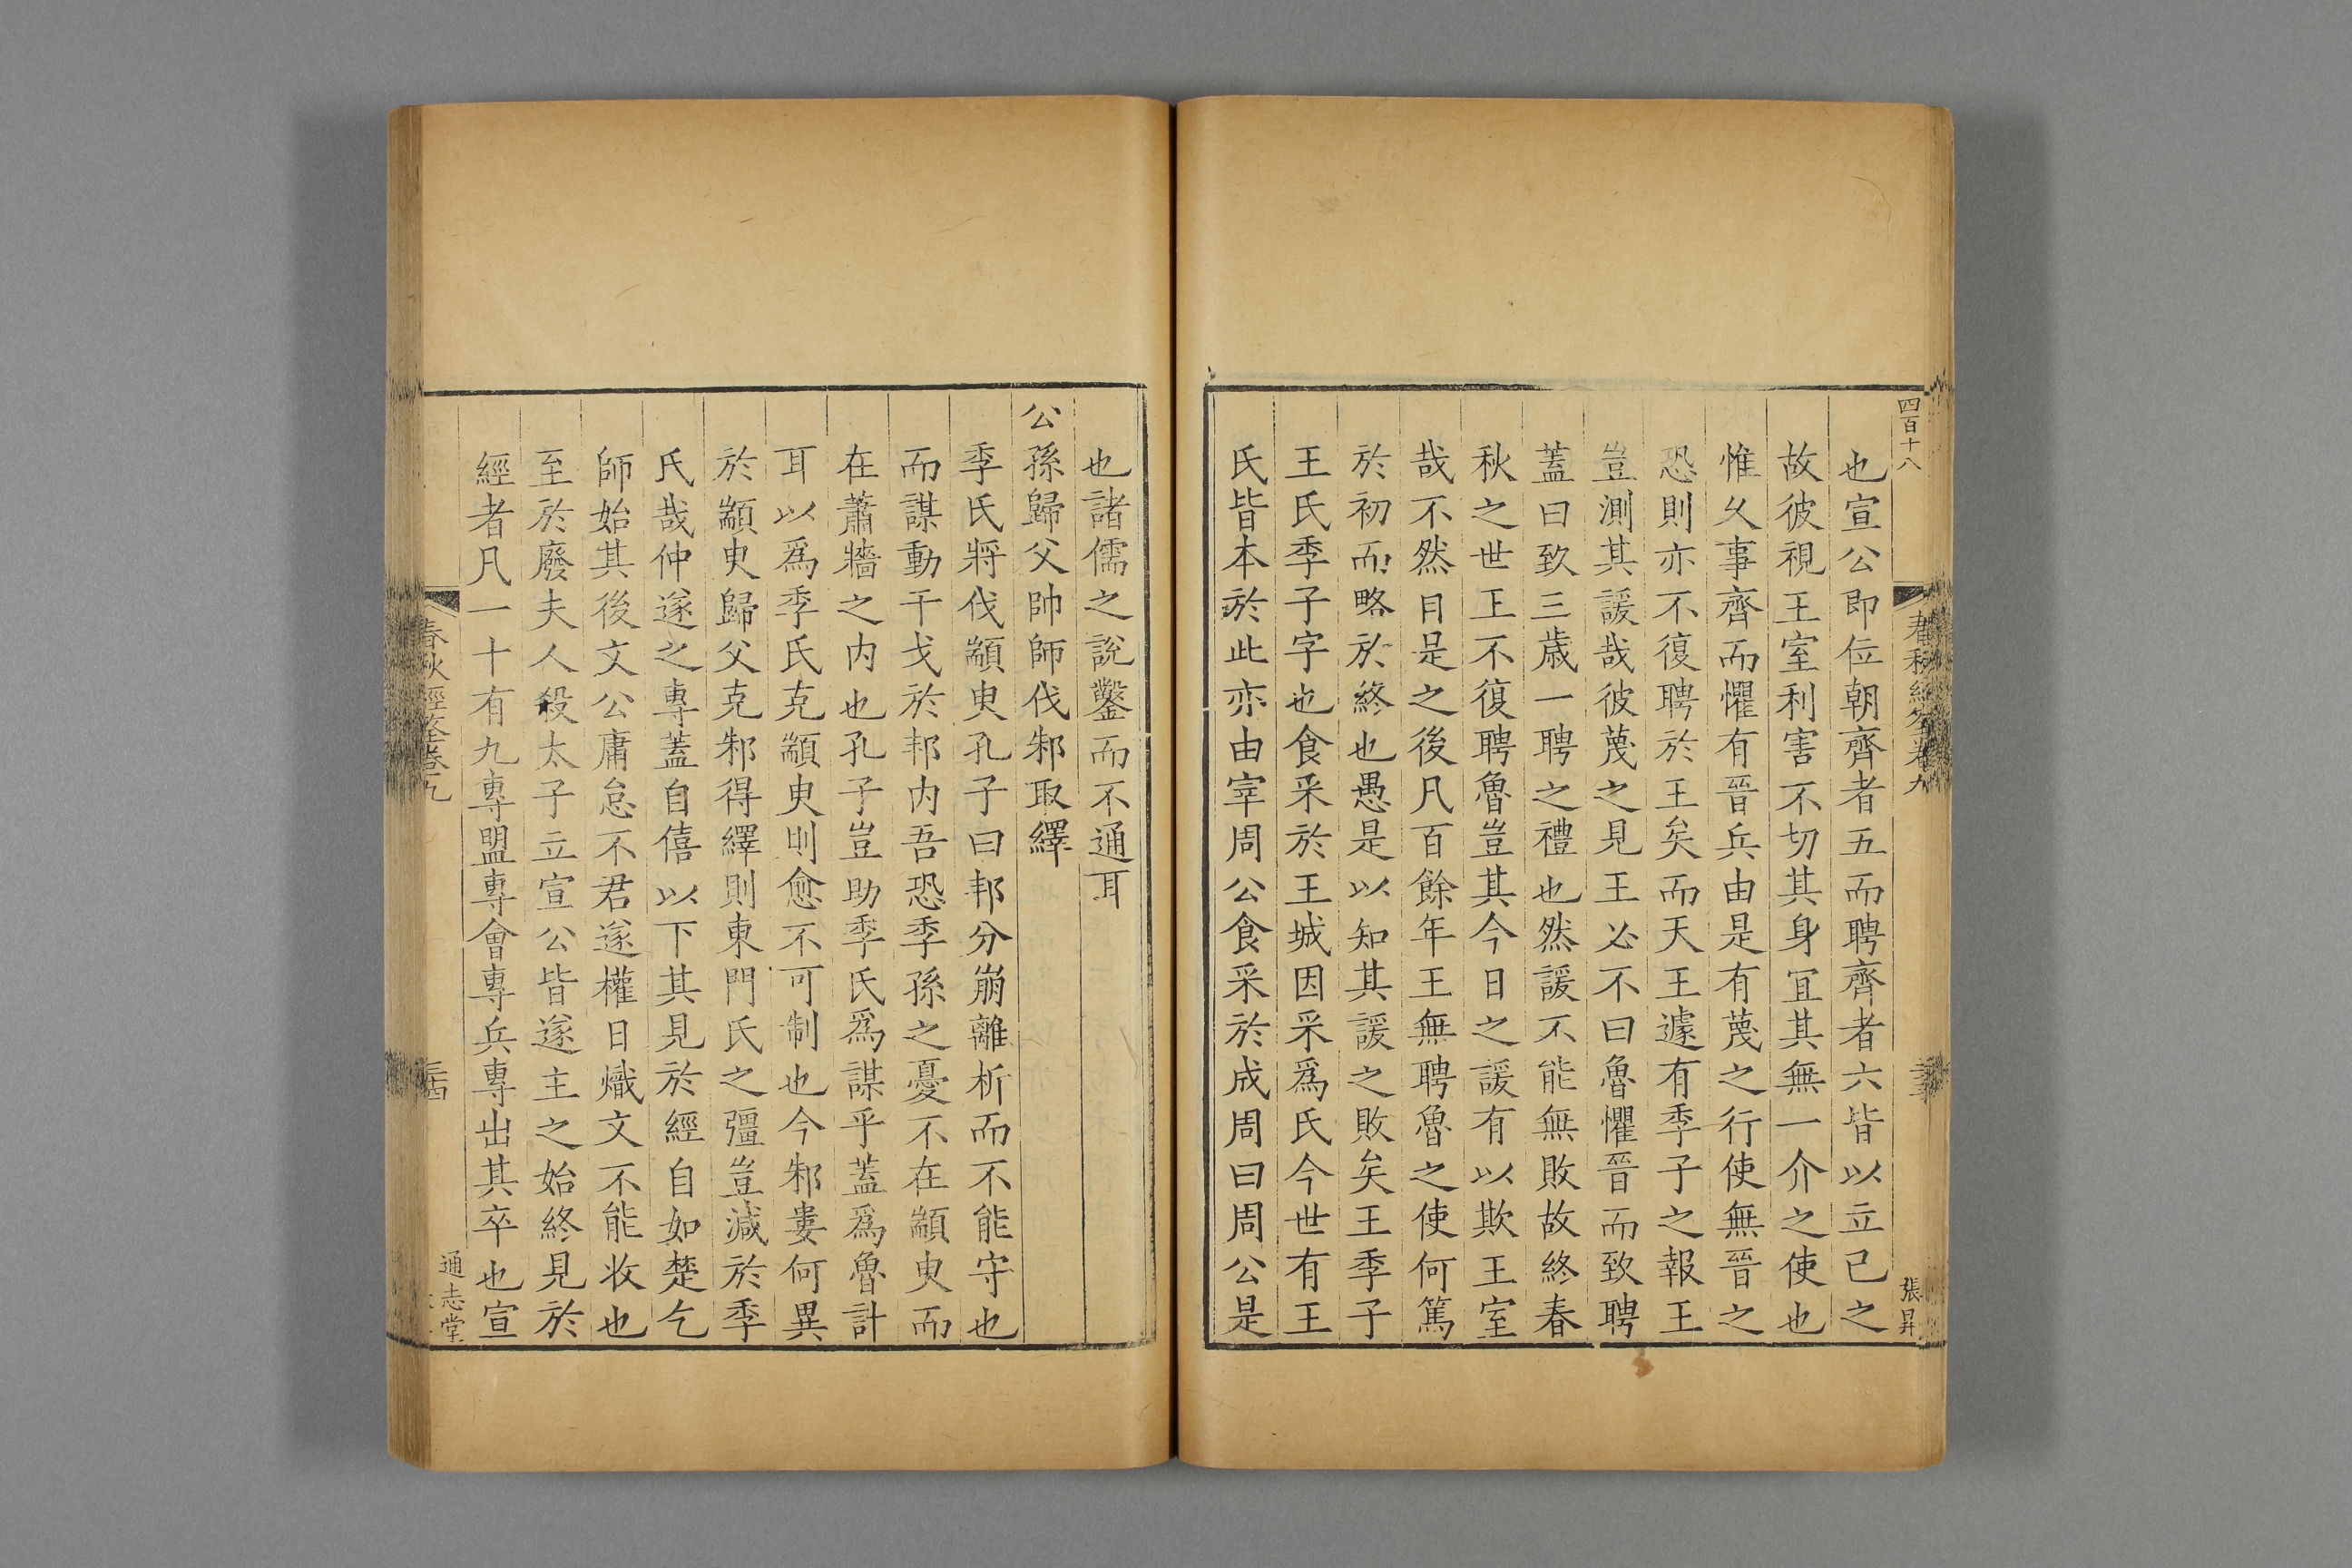 四百十八
春秋經筌卷九
張昇
也宣公即位朝齊者五而聘齊者六皆以立已之
故彼視王室利害不切其身冝其無一介之使也
惟夂事齊而懼有晉兵由是有蔑之行使無晉之
恐則亦不復聘於王矣而天王遽有季子之報王
豈測其諼哉彼蔑之見王必不曰魯懼晉而致聘
蓋曰致三歲一聘之禮也然諼不能無敗故終春
秋之世王不復聘魯豈其今日之諼有以欺王室
哉不然日是之後凡百餘年王無聘魯之使何篤
於初而略於終也愚是以知其諼之敗矣王季子
王氏季子字也食采於王城因采爲氏今世有王
氏皆本於此亦由宰周公食采於成周曰周公是
也諸儒之說鑿而不通耳
公孫歸父帥師伐邾取繹
季氏將伐顓臾孔子曰邦分崩離析而不能守也
而謀動干戈於邦内吾恐季孫之憂不在顓臾而
在蕭牆之内也孔子豈助季氏爲謀乎蓋爲魯計
耳以爲季氏克顓臾則愈不可制也今邾婁何異
於顓臾歸父克邾得繹則東門氏之彊豈減於季
氏哉仲遂之專蓋自僖以下其見於經自如楚乞
師始其後文公庸怠不君遂權日熾文不能收也
至於廢夫人殺太子立宣公皆遂主之始終見於
經者凡一十有九專盟專會專兵專出其卒也宣
春秋經筌卷九
三四
通志堂